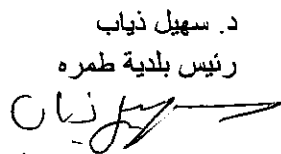 د. سهيل ذياب
رئيس بلدية طمره
سهيل ذياب